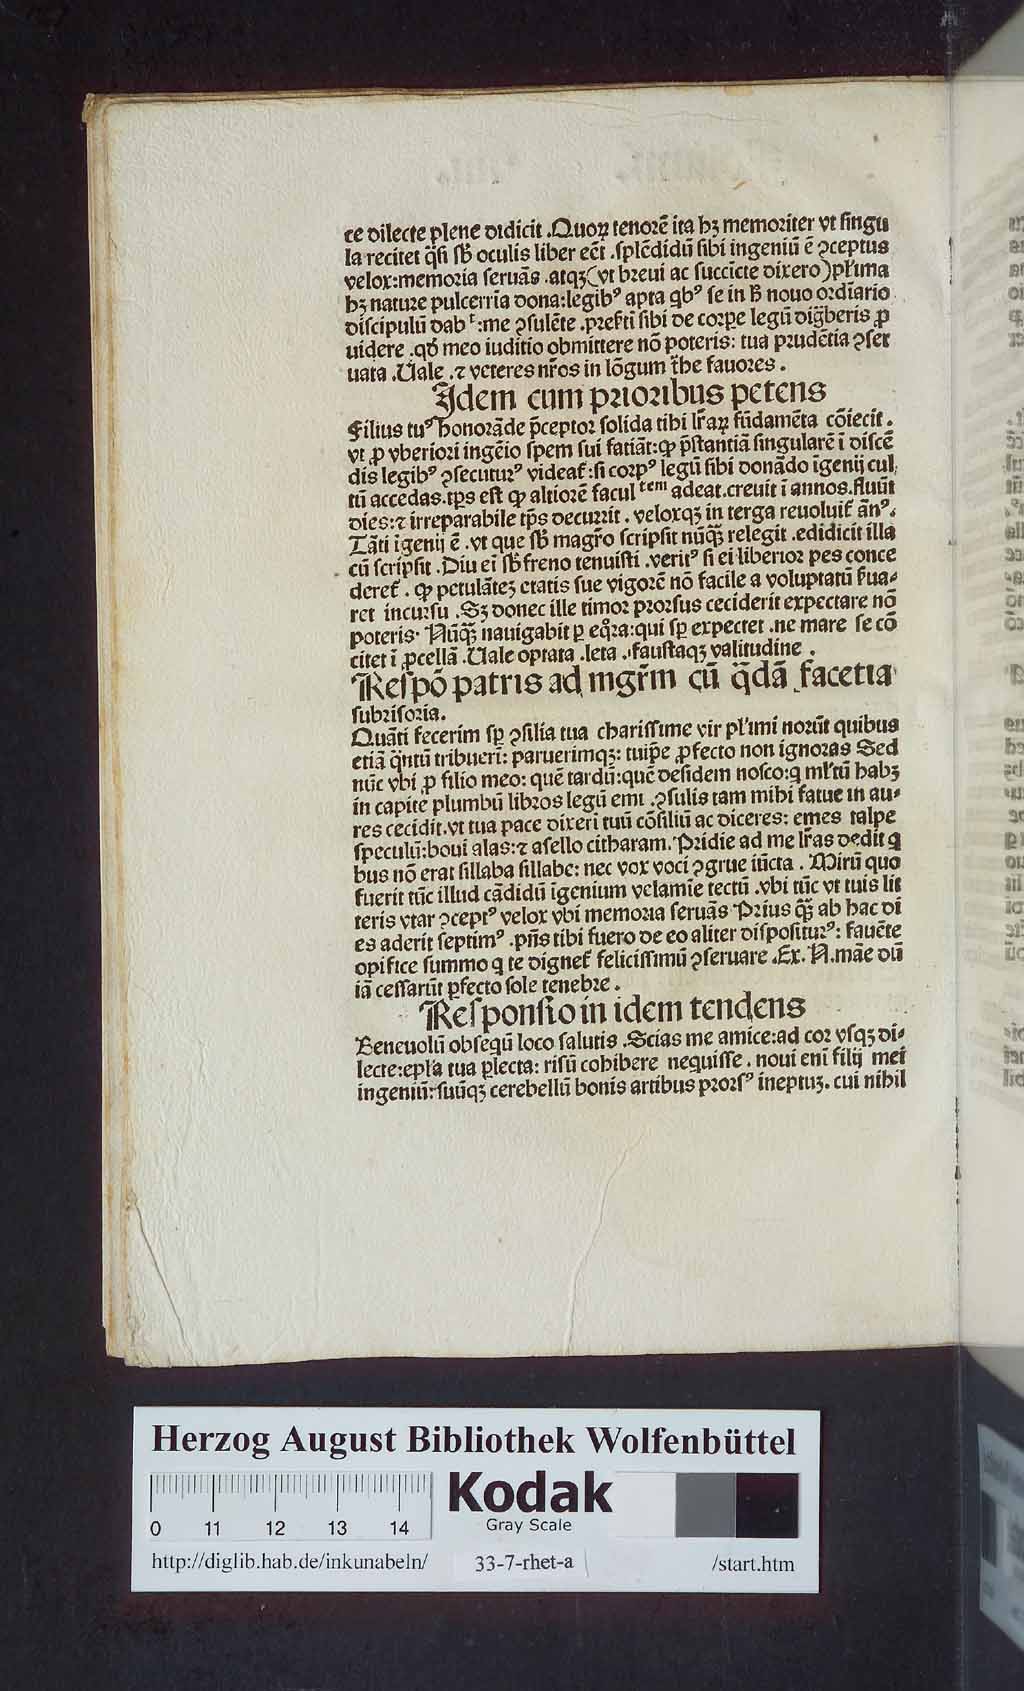 te dilecte plene didicit .Quoꝝ tenorē ita hꝫ memoriter vt singu
la recitet q̄si sb̄ oculis liber eēt .splēdidū sibi ingeniū ē ꝯceptus
velox:memoria seruās .atqꝫ(vt breui ac succicte dixero)pl'ima
hꝫ nature pulcerria dona:legibꝰ apta qbꝰ se in h̄ nouo ordīario
discipulū dab ͭ :me ꝯsulēte .prefti sibi de corpe legū digberis ꝓ
uidere .qđ meo iuditio obmittere nō poteris: tua prudētia ꝯser
uata .Uale .⁊ veteres nr̄os in lōgum tr̄he fauores .
Idem cum prioribus petens
Filius tuꝰ honorāde p̄ceptor solida tibi lr̄aꝝ fūdamēta cōiecit .
vt ꝓ vberiori ingēio spem sui fatiāt:ꝙ p̄stantiā singularē ī discē
dis legibꝰ ꝯsecuturꝰ videat̄:si corpꝰ legū sibi donādo īgenij cul
tū accedas.tp̄s est ꝙ altiorē facul ᵗᵉᵐ adeat.creuit ī annos.fluūt
dies:⁊ irreparabile tp̄s decurrit . veloxqꝫ in terga reuoluit̄ ānꝰ.
Tāti īgenij ē .vt que sb̄ magr̄o scripsit nūq̄ꝫ relegit .edidicit illa
cū scripsit .Diu ei sb̄ freno tenuisti .veritꝰ si ei liberior pes conce
deret̄ . ꝙ petulātez etatis sue vigorē nō facile a voluptatū f̄ua-
ret incursu .Sꝫ donec ille timor prorsus ceciderit expectare nō
poteris. Nūq̄ꝫ nauigabit ꝑ eqͦra:qui sꝑ expectet .ne mare se cō
citet ī ꝓcellā .Uale optata .leta .faustaqꝫ valitudine .
Respō patris ad mgr̄m cū q̄dā facetia
subrisoria.
Quāti fecerim sꝑ ꝯsilia tua charissime vir pl'imi norūt quibus
etiā q̄ntū tribueri: paruerimqꝫ: tuip̄e ꝓfecto non ignoras Sed
nūc vbi ꝓ filio meo: quē tardū:quē desidem nosco:q ml'tū habꝫ
in capite plumbū libros legū emi .ꝯsulis tam mihi fatue in au-
res cecidit.vt tua pace dixeri tuū cōsiliū ac diceres: emes talpe
speculū:boui alas:⁊ asello citharam. Pridie ad me lr̄as dedit q
bus nō erat sillaba sillabe: nec vox voci ꝯgrue iūcta . Mirū quo
fuerit tūc illud cādidū īgenium velamīe tectū .vbi tūc vt tuis lit
teris vtar ꝯceptꝰ velox vbi memoria seruās Prius q̄ꝫ ab hac di
es aderit septimꝰ .pn̄s tibi fuero de eo aliter dispositurꝰ: fauēte
opifice summo q te dignet̄ felicissimū ꝯseruare .Ex. N.māe dū
iā cessarūt ꝑfecto sole tenebre .
Responsio in idem tendens
Beneuolū obseqū loco salutis .Scias me amice:ad cor vsqꝫ di-
lecte:epl'a tua ꝑlecta: risū cohibere nequisse . noui eni filij mei
ingeniū:suūqꝫ cerebellū bonis artibus prorsꝰ ineptuꝫ. cui nihil
Herzog August Bibliothek Wolfenbüttel
Kodak
Gray Scale
0 11 12 13 14
http://diglib.hab.de/inkunabeln/ 33-7-rhet-a /start.htm